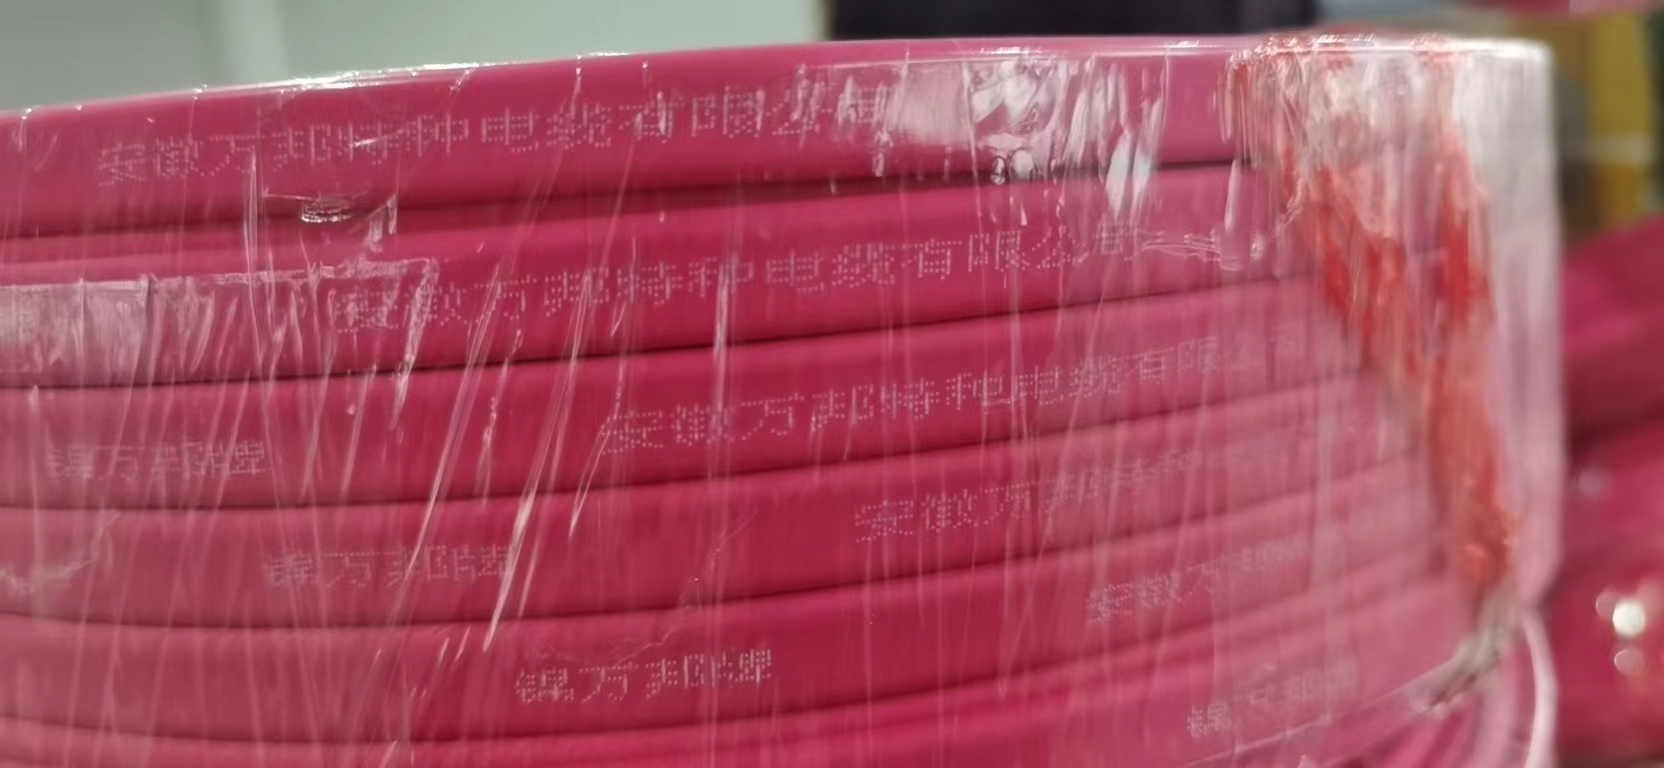 安徽万邦特种电缆有限公司
安徽万邦特种电缆有限公司
安徽万邦特种电缆有限公司
锦万邦牌
安徽万邦特种
锦万邦牌
安徽万邦
锦万邦牌
锦万邦牌